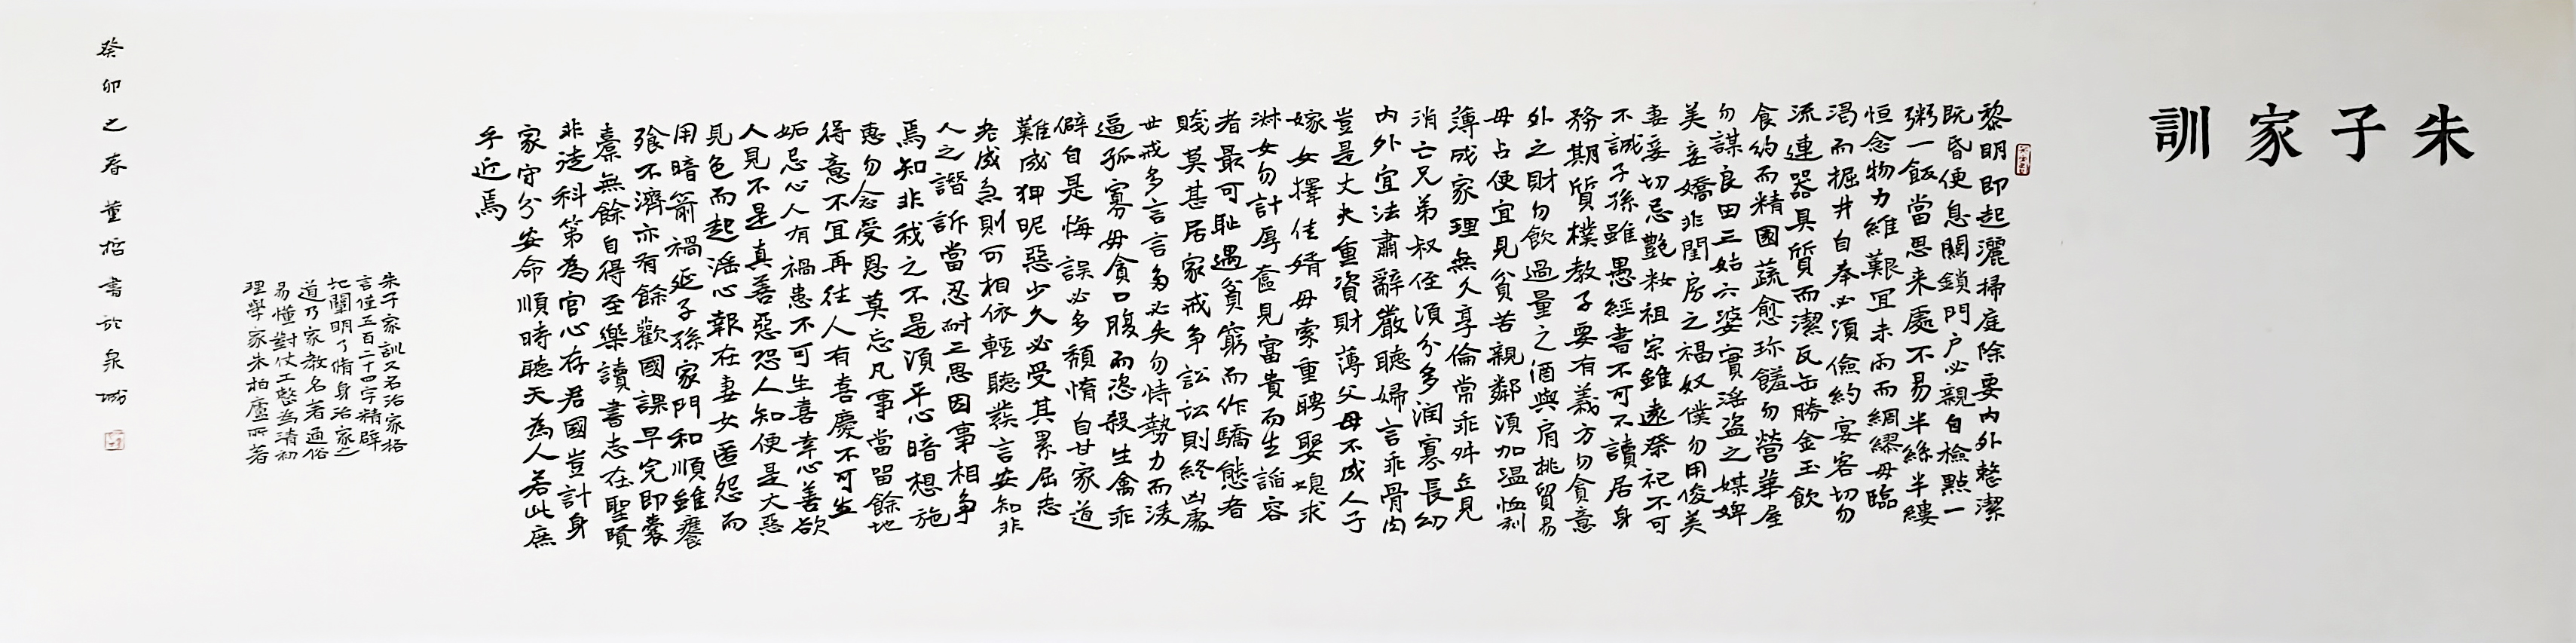 朱子家訓
黎明即起灑掃庭除要內外整潔
既昏便息關鎖門户必親自檢點一
粥一飯當思来處不易半絲半縷
恒念物力維艱宜未雨而綢繆毋臨
渴而掘井自奉必須儉約宴客切勿
流連器具質而潔瓦缶勝金玉飲
食約而精園蔬愈珎饈勿營華屋
勿謀良田三姑六婆實淫盗之媒婢
美妾嬌非閨房之福奴僕勿用俊美
妻妾切忌艷粧祖宗雖遠祭祀不可
不誠子孫雖愚經書不可不讀居身
務期質樸教子要有義方勿貪意
外之財勿飲過量之酒與肩挑貿易
毋占便宜見貧苦親鄰須加温恤刻
薄成家理無久享倫常乖舛立見
消亡兄弟叔侄須分多润寡長幼
內外宜法肅辭嚴聽婦言乖骨肉
豈是丈夫重資財薄父母不成人子
嫁女擇佳婿毋索重聘娶媳求
淑女勿計厚奩見富貴而生諂容
者最可恥遇貧窮而作驕態者
賤莫甚居家戒争訟訟則終凶處
世戒多言言多必失勿恃勢力而凌
逼孤寡毋貪口腹而恣殺生禽乖
僻自是悔誤必多頹惰自甘家道
難成狎昵惡少久必受其累屈志
老成急則可相依輕聽發言安知非
人之譖訴當忍耐三思因事相争
焉知非我之不是須平心暗想施
惠勿念受恩莫忘凡事當留餘地
得意不宜再往人有喜慶不可生
妬忌心人有禍患不可生喜幸心善欲
人見不是真善惡恐人知便是大惡
見色而起淫心報在妻女匿怨而
用暗箭禍延子孫家門和順雖饔
飧不濟亦有餘歡國課早完即囊
橐無餘自得至樂讀書志在聖賢
非徒科第為官心存君國豈計身
家守分安命順時聽天為人若此庶
乎近焉
朱子家訓又名治家格
言僅五百二十四字精辟
地闡明了脩身治家之
道乃家教名著通俗
易懂對仗工整為清初
理學家朱柏廬所著
癸卯之春董哲書於泉城